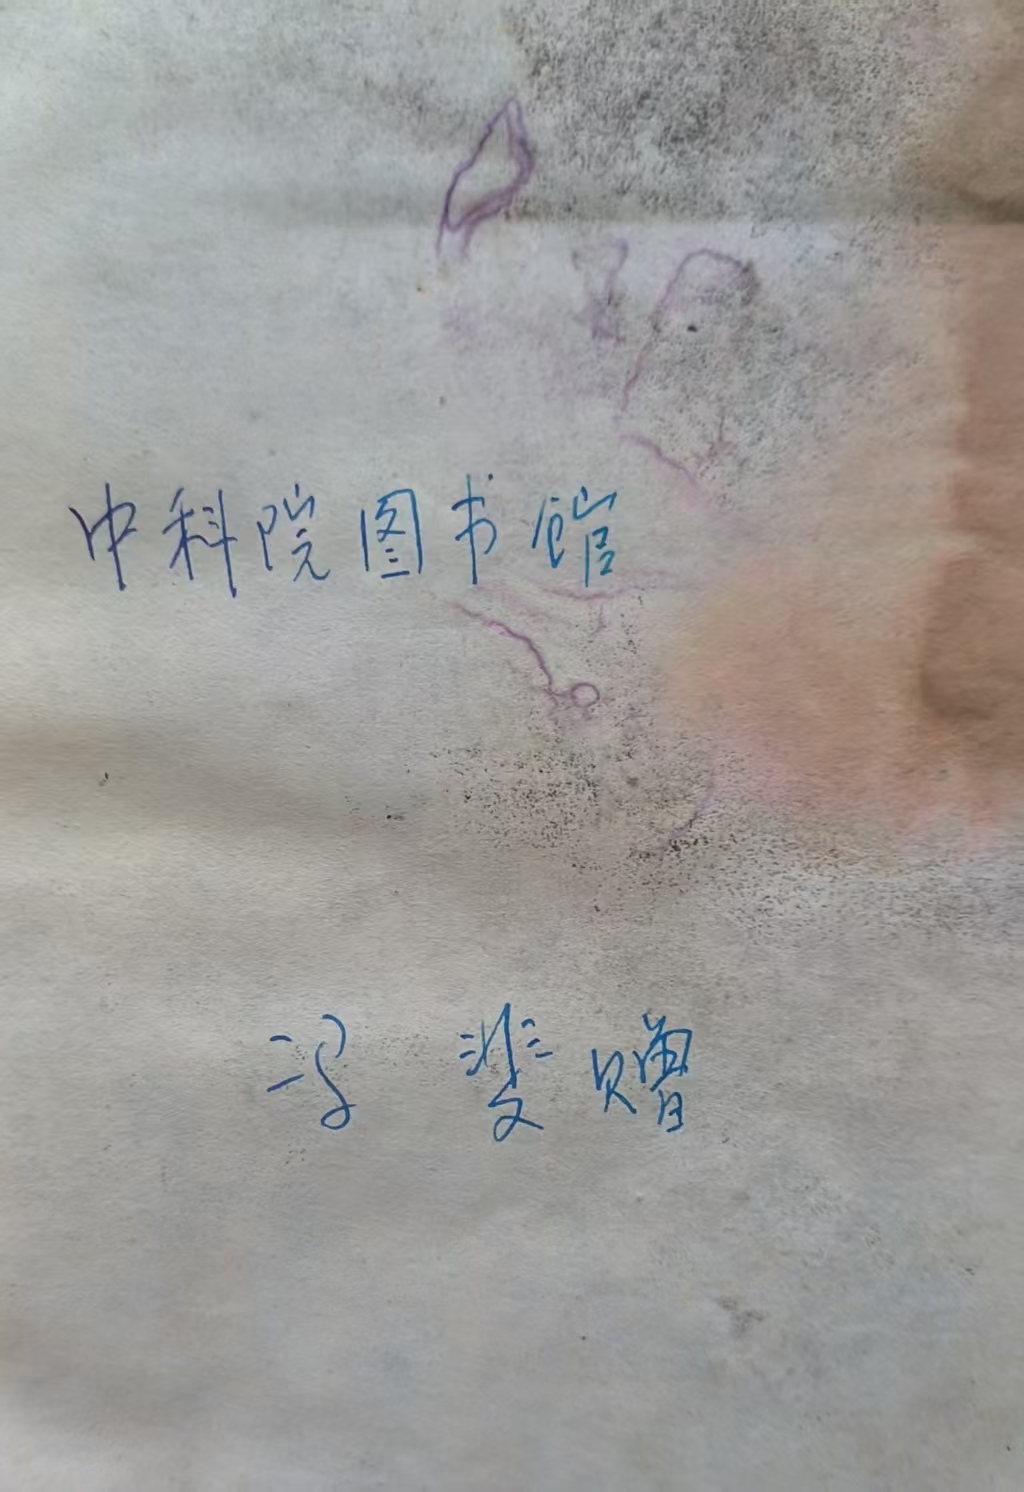 中科院图书馆
冯 斐赠